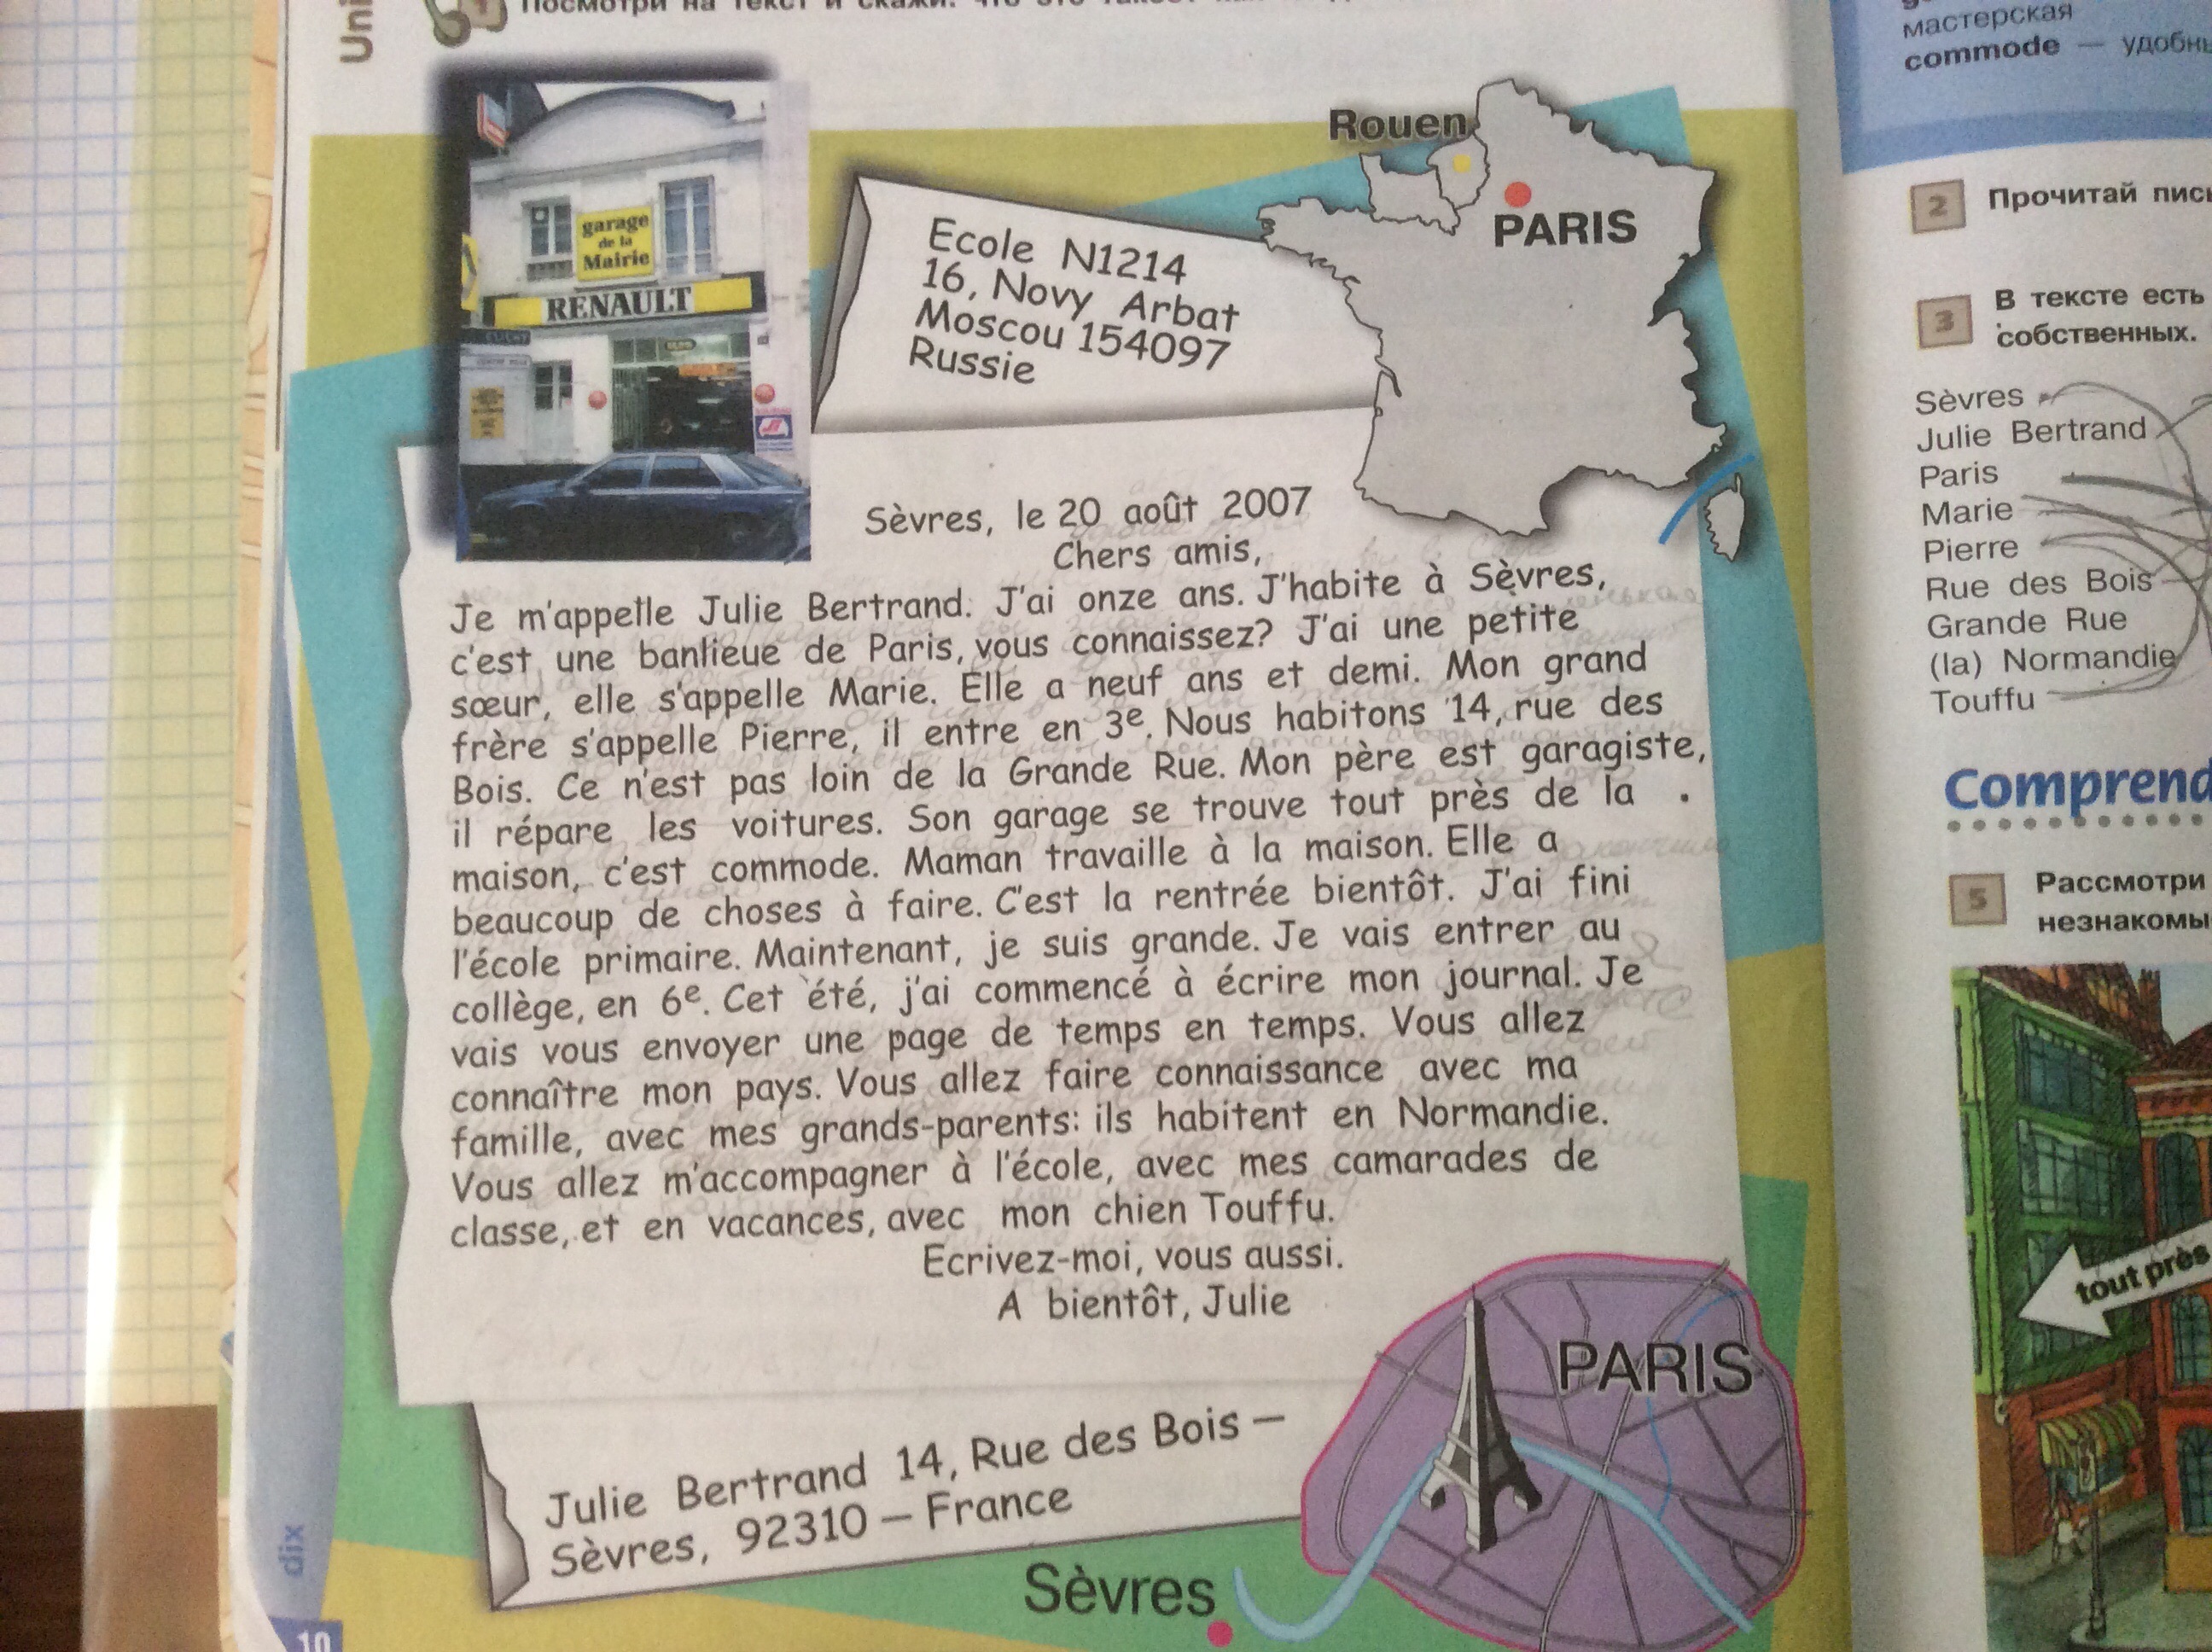 Uni
1
garage
de la
Mairie
RENAULT
Rouen
PARIS
Ecole N1214
16, Novy Arbat
Moscou 154097
Russie
Sèvres, le 20 août 2007
Chers amis,
Je m'appelle Julie Bertrand. J'ai onze ans. J'habite à Sèvres,
c'est une banlieue de Paris, vous connaissez? J'ai une petite
sœur, elle s'appelle Marie. Elle a neuf ans et demi. Mon grand
frère s'appelle Pierre, il entre en 3e. Nous habitons 14, rue des
Bois. Ce n'est pas loin de la Grande Rue. Mon père est garagiste,
il répare les voitures. Son garage se trouve tout près de la
maison, c'est commode. Maman travaille à la maison. Elle a
beaucoup de choses à faire. C'est la rentrée bientôt. J'ai fini
l'école primaire. Maintenant, je suis grande. Je vais entrer au
collège, en 6e. Cet été, j'ai commencé à écrire mon journal. Je
vais vous envoyer une page de temps en temps. Vous allez
connaître mon pays. Vous allez faire connaissance avec ma
famille, avec mes grands-parents: ils habitent en Normandie.
Vous allez m'accompagner à l'école, avec mes camarades de
classe, et en vacances, avec mon chien Touffu.
Ecrivez-moi, vous aussi.
A bientôt, Julie
Julie Bertrand 14, Rue des Bois —
Sèvres, 92310 — France
PARIS
Sèvres
dix
10
мастерская
commode — удобн
2 Прочитай пис
3 В тексте есть
собственных.
Sèvres
Julie Bertrand
Paris
Marie
Pierre
Rue des Bois
Grande Rue
(la) Normandie
Touffu
Comprend
5 Рассмотри
незнакомы
tout près